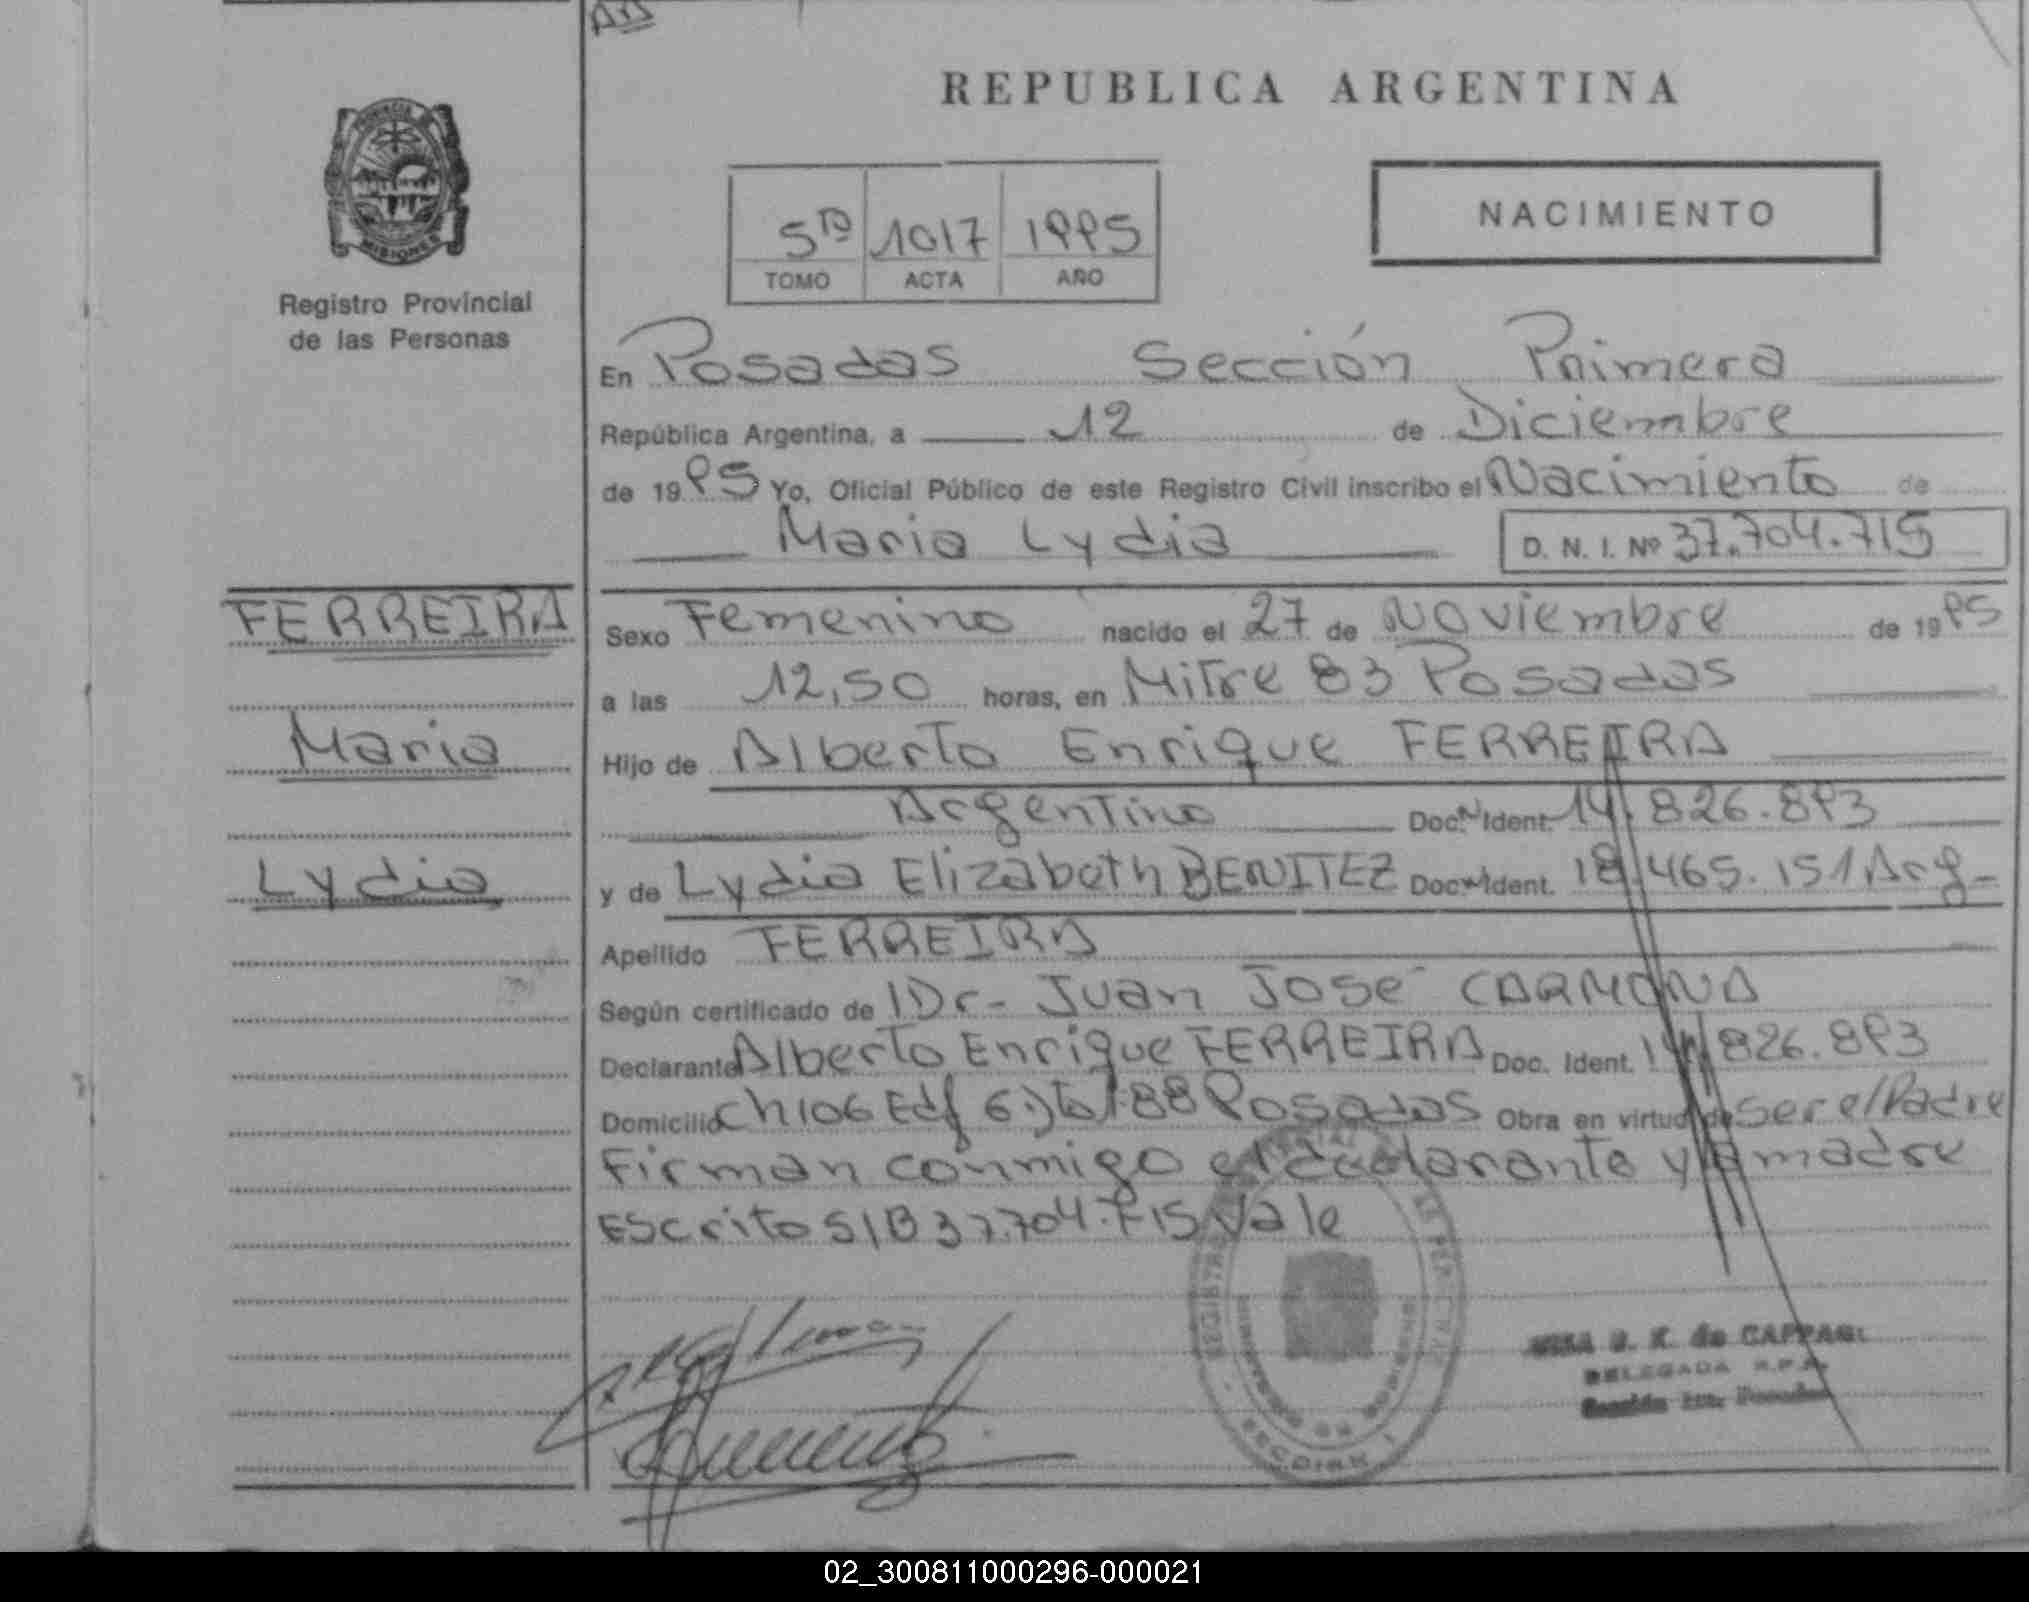 REPUBLICA ARGENTINA
PROVINCIA DE MISIONES
Registro Provincial
de las Personas
5to 1017 1995
TOMO ACTA AÑO
NACIMIENTO
En Posadas Sección Primera
República Argentina, a 12 de Diciembre
de 1995 Yo, Oficial Público de este Registro Civil inscribo el Nacimiento de
Maria Lydia D. N. I. Nº 37.704.715
FERREIRA
Maria
Lydia
Sexo Femenino nacido el 27 de Noviembre de 1995
a las 12,50 horas, en Mitre 83 Posadas
Hijo de Alberto Enrique FERREIRA
Argentino Doc. N Ident. 14.826.893
y de Lydia Elizabeth BENITEZ Doc. N Ident. 18.465.151 Arg-
Apellido FERREIRA
Según certificado de Dr- Juan José CARMONA
Declarante Alberto Enrique FERREIRA Doc. Ident. 14.826.893
Domicilio Ch 106 Edf 6 188 Posadas Obra en virtud de ser el Padre
Firman conmigo el declarante y la madre
Escrito S/B 37.704.715 Vale
de CAPPAGLI
DELEGADA R.P.P.
Sección 1ra. Posadas
SECCION 1
02_300811000296-000021